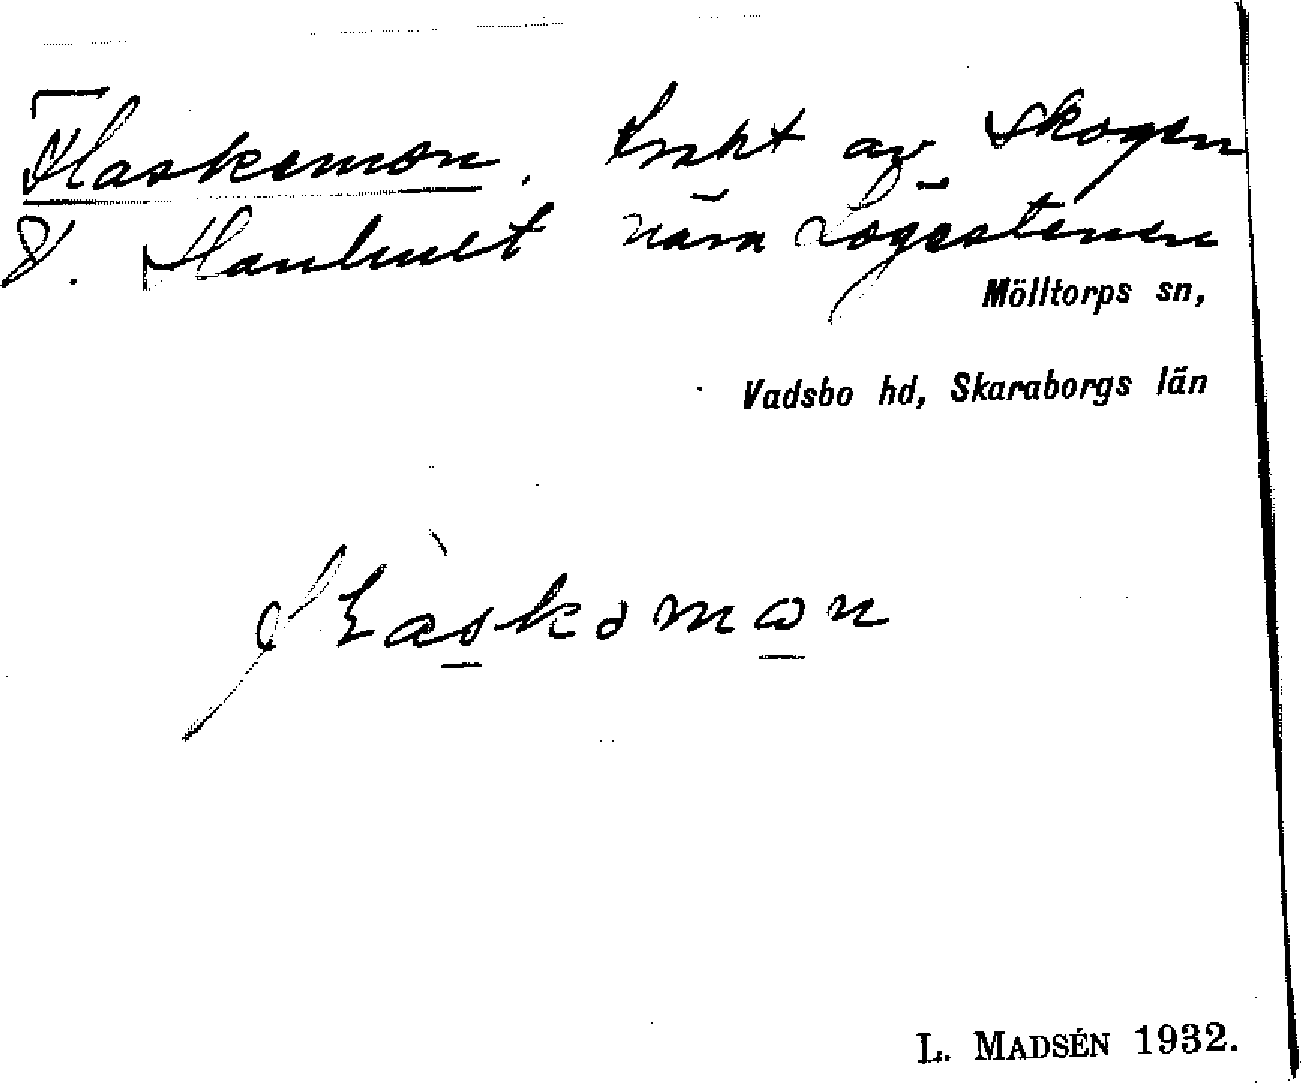 Flaskemon. trakt av skogen
V. Haulnult nära Lögestenen
Mölltorps sn,
Vadsbo hd, Skaraborgs län
flàskəmon
L. MADSÉN 1932.